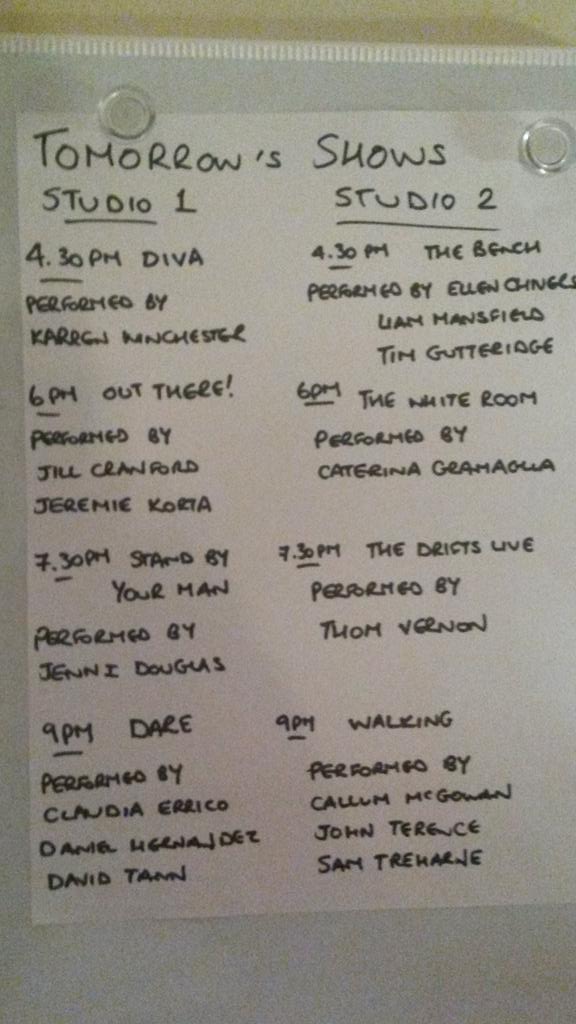 TOMORROW'S SHOWS
STUDIO 1
4.30PM DIVA
PERFORMED BY
KARREN WINCHESTER
6PM OUT THERE!
PERFORMED BY
JILL CRANFORD
JEREMIE KORTA
7.30PM STAND BY
YOUR MAN
PERFORMED BY
JENNI DOUGLAS
9PM DARE
PERFORMED BY
CLAUDIA ERRICO
DANIEL HERNANDEZ
DAVID TANN
STUDIO 2
4.30 PM THE BENCH
PERFORMED BY ELLEN CHIVERS
LIAM MANSFIELD
TIM GUTTERIDGE
6PM THE WHITE ROOM
PERFORMED BY
CATERINA GRAMAGLIA
7.30PM THE DRIFTS LIVE
PERFORMED BY
THOM VERNON
9PM WALKING
PERFORMED BY
CALLUM McGOWAN
JOHN TERENCE
SAM TREHARNE